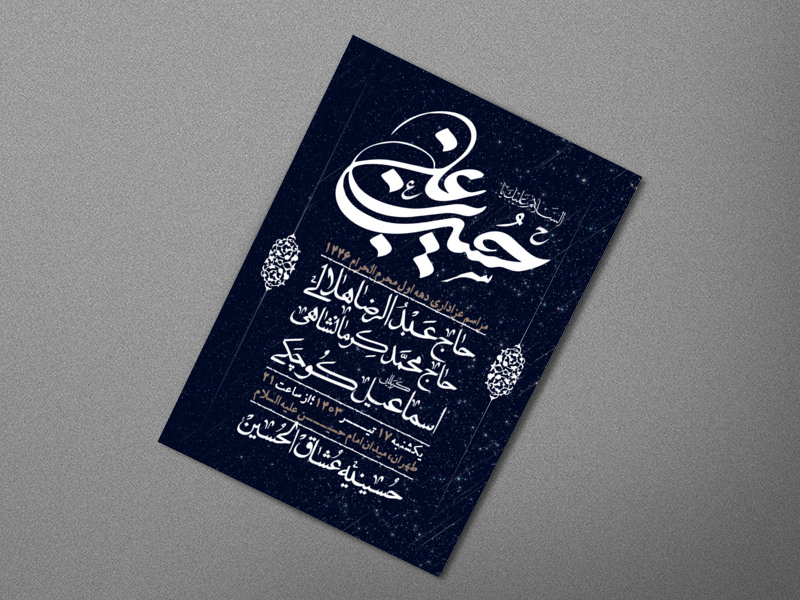 السلام علیک یا
حسین غریب
مراسم عزاداری دهه اول محرم الحرام ۱۴۴۶
حاج عبدالرضا هلالی
حاج محمد کرمانشاهی
کربلایی
اسماعیل کوچکی
یکشنبه ۱۷ تیر ۱۴۰۳ | از ساعت ۲۱
طهران، میدان امام حسین علیه السلام
حسینیه عشاق الحسین